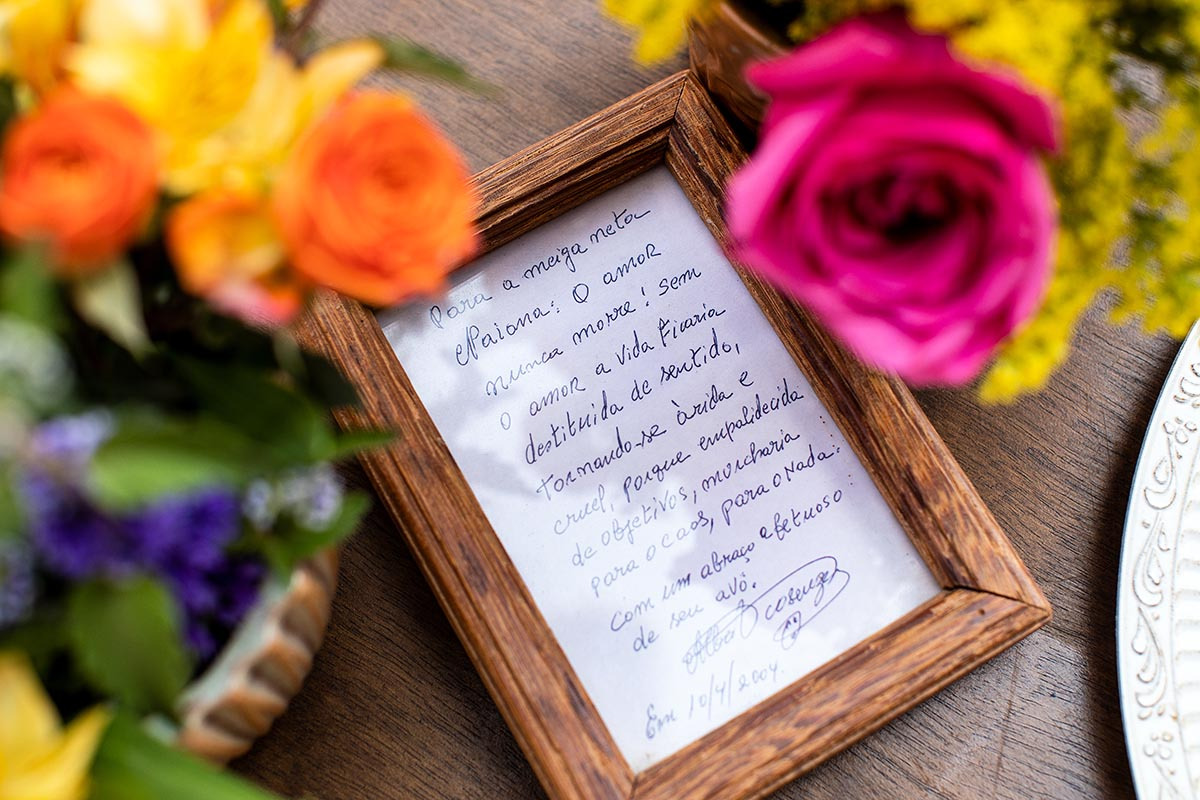 Para a meiga neta
Naiana: O amor
nunca morre! sem
o amor a vida ficaria
destituida de sentido,
tornando-se àrida e
cruel, porque empalidecida
de objetivos, murcharia
para o caos, para o nada.
com um abraço afetuoso
de seu avô.
Cosenza
Em 10/4/2004.